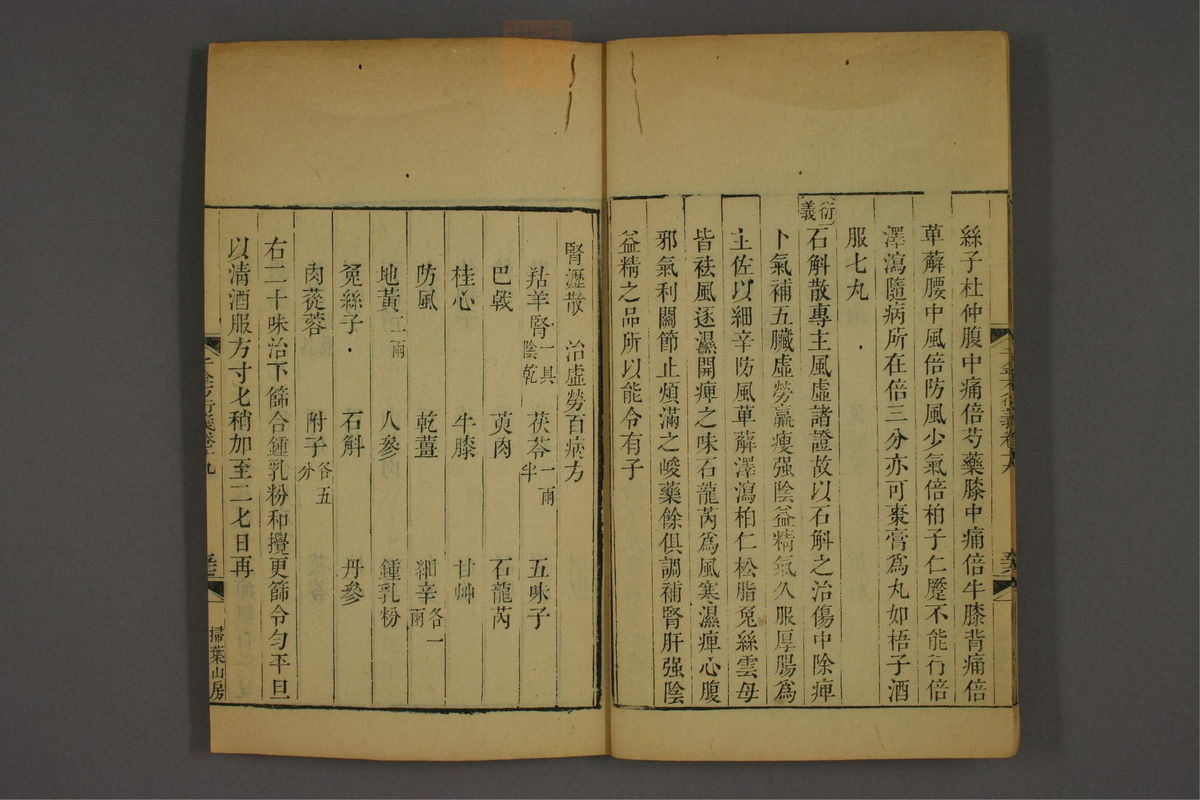 絲子杜仲腹中痛倍芍藥膝中痛倍牛膝背痛倍
萆薢腰中風倍防風少氣倍柏子仁蹷不能行倍
澤瀉隨病所在倍三分亦可棗膏爲丸如梧子酒
服七丸
衍義
石斛散專主風虛諸證故以石斛之治傷中除痺
下氣補五臟虛勞羸瘦强陰益精氣久服厚腸爲
主佐以細辛防風萆薢澤瀉柏仁松脂兔絲雲母
皆袪風逐濕開痺之味石龍芮爲風寒濕痺心腹
邪氣利關節止煩滿之峻藥餘俱調補腎肝强陰
益精之品所以能令有子
腎瀝散 治虛勞百病方
羖羊腎一具陰乾 茯苓一兩半 五味子
巴戟 萸肉 石龍芮
桂心 牛膝 甘艸
防風 乾薑 細辛各一兩
地黃二兩 人參 鍾乳粉
兔絲子 石斛 丹參
肉蓯蓉 附子各五分
右二十味治下篩合鍾乳粉和攪更篩令勻平旦
以清酒服方寸匕稍加至二匕日再
千金方衍義卷十九
掃葉山房